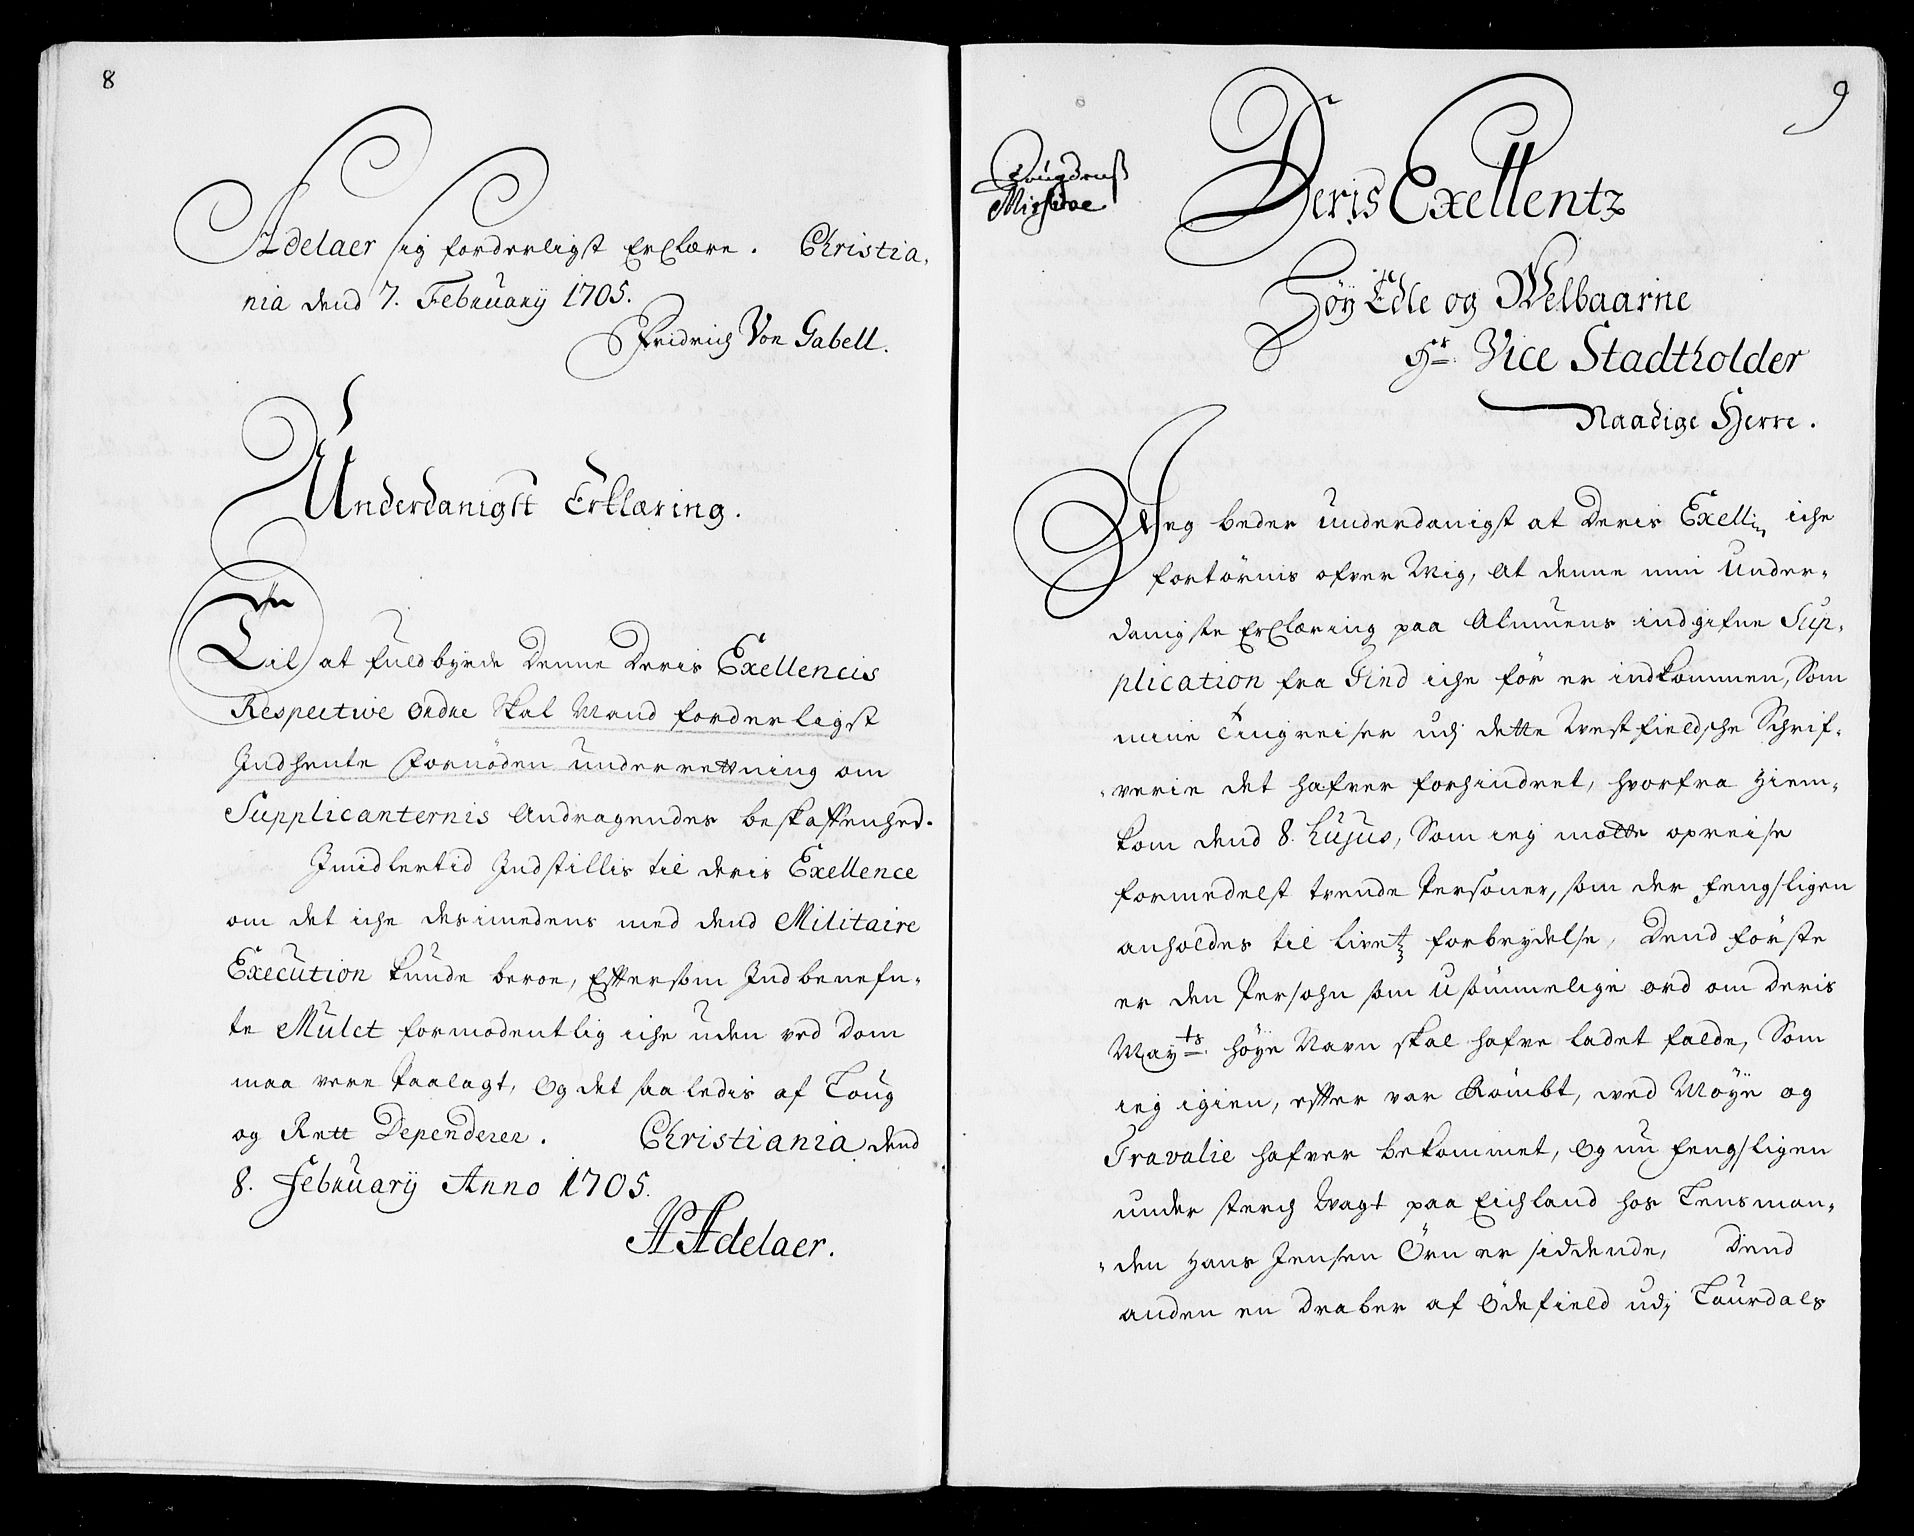 8
Adelaer sig forderligst Erclære. Christia,
nia dend 7. February 1705.
Fridrich Von Gabell.
Underdanigst Erklæring.
Til at fuldbyrde Denne Deris Exellencis
Respective Ordre skal Mand forderligst
Indhente fornöden underrettning om
Supplicanternis Andragendes beskaffenhed.
Imidlertid Indstillis til deris Exellence
om det iche desimedens med dend Militaire
Execution kunde beroe, Eftersom Indbenefn,
te Mulct formodentlig iche uden ved Dom
maa være Paalagt, Og det saaledis af Loug
og Rett Dependerer. Christiania dend
8. February Anno 1705.
A Adelaer.
9
Deris Exellentz
Höy Edle og Welbaarne
Hr. Vice Stadtholder
Naadige Herre.
Jeg beder underdanigst at Deris Exell: iche
fortörnis ofver Mig, At denne min Under,
danigste Erclæring paa Almuens indgifne Sup,
plication fra Find iche för er indkommen, Som
mine Tingreiser udj dette Westfieldsche Schrif,
verie det hafver forhindret, hvorfra Hiem,
kom dend 8. hujus, Som ieg motte opreise
formedelst trende Personer, som der fengsligen
anholdes til livetz forbrydelse, Dend förste
er den Persohn som Usömmelige ord om Deris
Mayts. höye Navn skal hafve ladet falde, Som
ieg igien, efter var Römbt, med Möye og
Travalie hafver bekommet, Og nu fengsligen
under sterch Wagt paa Eichland hos Lensman,
den Hans Jensen Örn er siddende, Dend
anden en Draber af Ödefield udj Laurdals